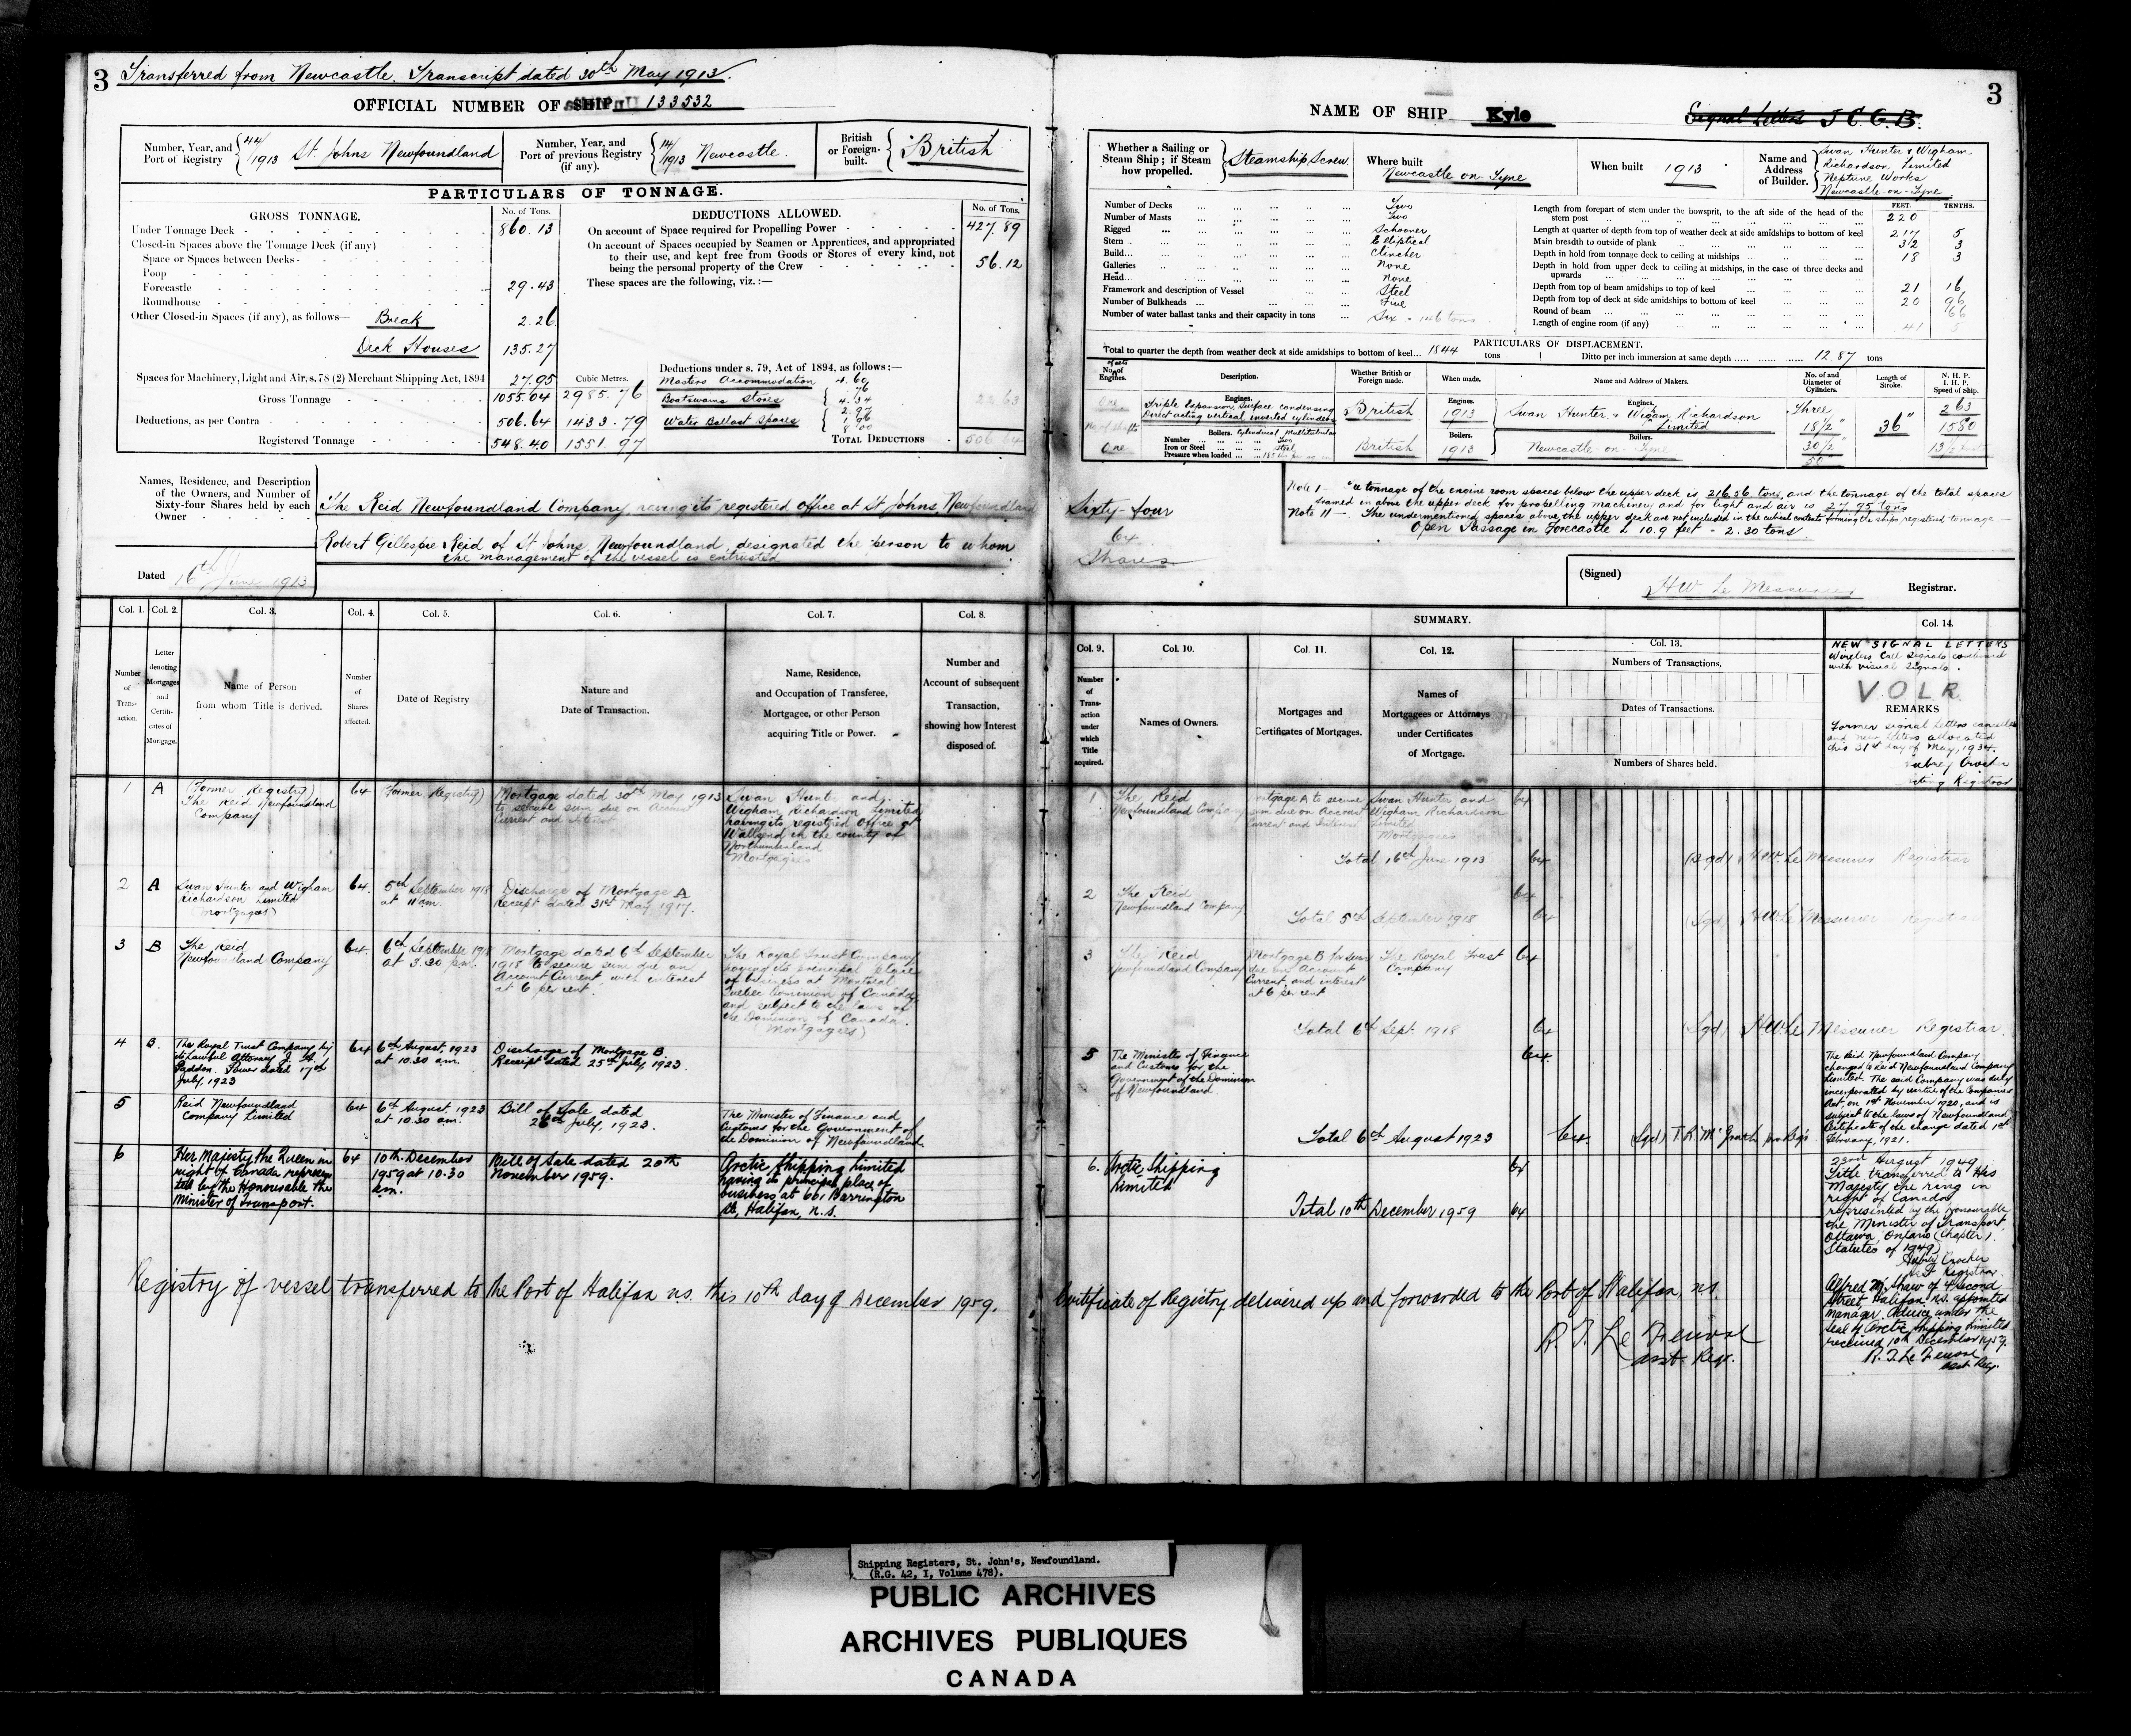 3 Transferred from Newcastle. Transcript dated 30th May 1913.
OFFICIAL NUMBER OF SHIP 133532
Number, Year, and Port of Registry 44/1913 St. Johns Newfoundland
Number, Year, and Port of previous Registry (if any). 14/1913 Newcastle.
British or Foreign-built. British
PARTICULARS OF TONNAGE.
GROSS TONNAGE. No. of Tons.
Under Tonnage Deck 860.13
Closed-in Spaces above the Tonnage Deck (if any)
Space or Spaces between Decks
Poop
Forecastle 29.43
Roundhouse
Other Closed-in Spaces (if any), as follows— Break 2.26
Deck Houses 135.27
Spaces for Machinery, Light and Air, s. 78 (2) Merchant Shipping Act, 1894 27.95 Cubic Metres.
Gross Tonnage 1055.04 2985.76
Deductions, as per Contra 506.64 1433.79
Registered Tonnage 548.40 1551.97
DEDUCTIONS ALLOWED. No. of Tons.
On account of Space required for Propelling Power 427.89
On account of Spaces occupied by Seamen or Apprentices, and appropriated
to their use, and kept free from Goods or Stores of every kind, not
being the personal property of the Crew 56.12
These spaces are the following, viz.:—
Deductions under s. 79, Act of 1894, as follows:—
Masters Accommodation 4.60
Boatswains Stores 4.34
Water Ballast Spaces 2.97
22.63
TOTAL DEDUCTIONS 506.64
Names, Residence, and Description
of the Owners, and Number of
Sixty-four Shares held by each
Owner
The Reid Newfoundland Company having its registered office at St Johns, Newfoundland
Robert Gillespie Reid of St Johns Newfoundland, designated the person to whom
the management of the vessel is entrusted
Dated 16th June 1913
Col. 1. Col. 2. Col. 3. Col. 4. Col. 5. Col. 6. Col. 7. Col. 8.
Number of Transaction.
Letter denoting Mortgages and Certificates of Mortgage.
Name of Person from whom Title is derived.
Number of Shares affected.
Date of Registry
Nature and Date of Transaction.
Name, Residence, and Occupation of Transferee, Mortgagee, or other Person acquiring Title or Power.
Number and Account of subsequent Transaction, showing how Interest disposed of.
1 A (Former Registry) The Reid Newfoundland Company 64 (Former Registry)
Mortgage dated 30th May 1913 to secure sum due on Account Current and Interest
Swan Hunter and Wigham Richardson Limited having its registered Office at Wallsend in the county of Northumberland Mortgagees
2 A Swan Hunter and Wigham Richardson Limited (Mortgagees) 64 5th September 1918 at 11 am.
Discharge of Mortgage A Receipt dated 31st May 1917.
3 B The Reid Newfoundland Company 64 6th September 1918 at 3.30 p.m.
Mortgage dated 6th September 1918 to secure sum due on Account Current, with interest at 6 per cent.
The Royal Trust Company having its principal place of business at Montreal Quebec Dominion of Canada and subject to the laws of the Dominion of Canada. (Mortgagees)
4 B. The Royal Trust Company by its lawful Attorney J. A. Paddon. Power dated 17th July, 1923 64 6th August, 1923 at 10.30 am.
Discharge of Mortgage B Receipt dated 25th July, 1923.
5 Reid Newfoundland Company Limited 64 6th August, 1923 at 10.30 am.
Bill of Sale dated 26th July, 1923.
The Minister of Finance and Customs for the Government of the Dominion of Newfoundland.
6 Her Majesty the Queen in right of Canada represented by the Honourable the Minister of Transport. 64 10th December 1959 at 10.30 am.
Bill of Sale dated 20th November 1959.
Arctic Shipping Limited having its principal place of business at 661 Barrington St., Halifax, n.s.
Registry of vessel transferred to the Port of Halifax n.s. this 10th day of December 1959.
NAME OF SHIP Kyle
Signal Letters J C G B.
3
Whether a Sailing or Steam Ship; if Steam how propelled. Steamship, Screw
Where built Newcastle on Tyne
When built 1913
Name and Address of Builder. Swan Hunter & Wigham Richardson Limited Neptune Works Newcastle-on-Tyne
Number of Decks Two
Number of Masts Two
Rigged Schooner
Stern Elliptical
Build Clincher
Galleries None
Head None
Framework and description of Vessel Steel
Number of Bulkheads Five
Number of water ballast tanks and their capacity in tons Six - 146 tons
FEET. TENTHS.
Length from forepart of stem under the bowsprit, to the aft side of the head of the stern post 220
Length at quarter of depth from top of weather deck at side amidships to bottom of keel 217 5
Main breadth to outside of plank 32 3
Depth in hold from tonnage deck to ceiling at midships 18 3
Depth in hold from upper deck to ceiling at midships, in the case of three decks and upwards
Depth from top of beam amidships to top of keel 21 16
Depth from top of deck at side amidships to bottom of keel 20 96
Round of beam 66
Length of engine room (if any) 41 5
PARTICULARS OF DISPLACEMENT.
Total to quarter the depth from weather deck at side amidships to bottom of keel 1844 tons
Ditto per inch immersion at same depth 12.87 tons
No. of sets of Engines. Description. Whether British or Foreign made. When made. Name and Address of Makers. No. of and Diameter of Cylinders. Length of Stroke. N. H. P. I. H. P. Speed of Ship.
One
No. of Shafts
One
Engines. Triple Expansion, Surface condensing Direct acting vertical inverted cylinders British
Engines. 1913
Engines. Swan Hunter & Wigham Richardson Limited
Three 18½" 30½" 50" 36" 263 1580 13½ knots
Boilers. Cylindrical Multitubular
Number Two
Iron or Steel Steel
Pressure when loaded
British
Boilers. 1913
Boilers. Newcastle-on-Tyne
Sixty four
64
Shares
Note I— The tonnage of the engine room spaces below the upper deck is 216.56 tons, and the tonnage of the total spaces
framed in above the upper deck for propelling machinery and for light and air is 27.95 tons
Note II—. The undermentioned spaces above the upper deck are not included in the cubical contents forming the ships registered tonnage—
Open Passage in Forecastle L 10.9 feet - 2.30 tons.
(Signed) H.W. Le Messurier Registrar.
SUMMARY.
Col. 9. Col. 10. Col. 11. Col. 12. Col. 13. Col. 14.
Number of Transaction under which Title acquired.
Names of Owners.
Mortgages and Certificates of Mortgages.
Names of Mortgagees or Attorneys under Certificates of Mortgage.
Numbers of Transactions.
Dates of Transactions.
Numbers of Shares held.
NEW SIGNAL LETTERS
Wireless Call Signals combined
with visual Signals.
V O L R
REMARKS
Former signal letters cancelled
and new letters allocated
this 31st day of May, 1934.
Aubrey Crocker
Acting Registrar
1 The Reid Newfoundland Company
Mortgage A to secure sum due on Account Current and Interest
Swan Hunter and Wigham Richardson Limited Mortgagees 64
Total 16th June 1913 64 (Sgd) H.W. Le Messurier Registrar
2 The Reid Newfoundland Company 64
Total 5th September 1918 64 (Sgd) H.W. Le Messurier Registrar
3 The Reid Newfoundland Company
Mortgage B for sum due on Account Current, and interest at 6 per cent
The Royal Trust Company 64
Total 6th Sept. 1918 64 (Sgd) H.W. Le Messurier Registrar.
5 The Minister of Finance and Customs for the Government of the Dominion of Newfoundland. 64
Total 6th August 1923 64. (Sgd) T.R. McGrath pro Reg's
The Reid Newfoundland Company
changed to Reid Newfoundland Company
Limited. The said Company was duly
incorporated by virtue of the Companies
Act, on 1st November 1920, and is
subject to the laws of Newfoundland
Certificate of the change dated 1st
February, 1921.
6. Arctic Shipping Limited 64
Total 10th December 1959 64
23rd August 1949
Title transferred to His
Majesty the King in
right of Canada
represented by the Honourable
the Minister of Transport,
Ottawa, Ontario (Chapter 1.
Statutes of 1949)
Aubrey Crocker
Registrar
Alfred M. Shaw of 4 Second
Street, Halifax n.s. appointed
manager. Advice under the
seal of Arctic Shipping Limited
received 10th December 1959.
Certificate of Registry delivered up and forwarded to the Port of Halifax, n.s.
Shipping Registers, St. John's, Newfoundland.
(R.G. 42, I, Volume 478).
PUBLIC ARCHIVES
ARCHIVES PUBLIQUES
CANADA